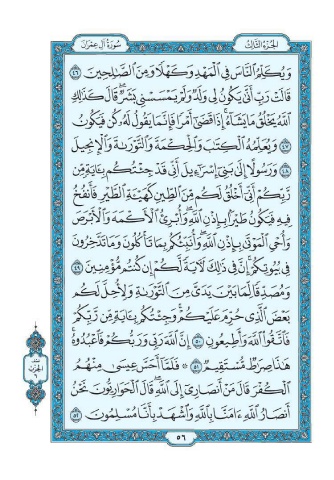 سُورَةُ آلِ عِمْرَانَ
الجُزْءُ الثَّالِثُ
وَيُكَلِّمُ ٱلنَّاسَ فِي ٱلْمَهْدِ وَكَهْلًا وَمِنَ ٱلصَّٰلِحِينَ ٤٦
قَالَتْ رَبِّ أَنَّىٰ يَكُونُ لِي وَلَدٌ وَلَمْ يَمْسَسْنِي بَشَرٌ ۖ قَالَ كَذَٰلِكِ
ٱللَّهُ يَخْلُقُ مَا يَشَآءُ ۚ إِذَا قَضَىٰٓ أَمْرًا فَإِنَّمَا يَقُولُ لَهُۥ كُن فَيَكُونُ
٤٧ وَيُعَلِّمُهُ ٱلْكِتَٰبَ وَٱلْحِكْمَةَ وَٱلتَّوْرَىٰةَ وَٱلْإِنجِيلَ
٤٨ وَرَسُولًا إِلَىٰ بَنِيٓ إِسْرَٰٓءِيلَ أَنِّي قَدْ جِئْتُكُم بِـَٔايَةٍ مِّن
رَّبِّكُمْ أَنِّيٓ أَخْلُقُ لَكُم مِّنَ ٱلطِّينِ كَهَيْـَٔةِ ٱلطَّيْرِ فَأَنفُخُ
فِيهِ فَيَكُونُ طَيْرًۢا بِإِذْنِ ٱللَّهِ ۖ وَأُبْرِئُ ٱلْأَكْمَهَ وَٱلْأَبْرَصَ
وَأُحْيِ ٱلْمَوْتَىٰ بِإِذْنِ ٱللَّهِ ۖ وَأُنَبِّئُكُم بِمَا تَأْكُلُونَ وَمَا تَدَّخِرُونَ
فِي بُيُوتِكُمْ ۚ إِنَّ فِي ذَٰلِكَ لَـَٔايَةً لَّكُمْ إِن كُنتُم مُّؤْمِنِينَ ٤٩
وَمُصَدِّقًا لِّمَا بَيْنَ يَدَيَّ مِنَ ٱلتَّوْرَىٰةِ وَلِأُحِلَّ لَكُم
بَعْضَ ٱلَّذِي حُرِّمَ عَلَيْكُمْ ۚ وَجِئْتُكُم بِـَٔايَةٍ مِّن رَّبِّكُمْ
فَٱتَّقُوا۟ ٱللَّهَ وَأَطِيعُونِ ٥٠ إِنَّ ٱللَّهَ رَبِّي وَرَبُّكُمْ فَٱعْبُدُوهُ ۗ
هَٰذَا صِرَٰطٌ مُّسْتَقِيمٌ ٥١ ۞ فَلَمَّآ أَحَسَّ عِيسَىٰ مِنْهُمُ
ٱلْكُفْرَ قَالَ مَنْ أَنصَارِيٓ إِلَى ٱللَّهِ ۖ قَالَ ٱلْحَوَارِيُّونَ نَحْنُ
أَنصَارُ ٱللَّهِ ءَامَنَّا بِٱللَّهِ وَٱشْهَدْ بِأَنَّا مُسْلِمُونَ ٥٢
٥٦